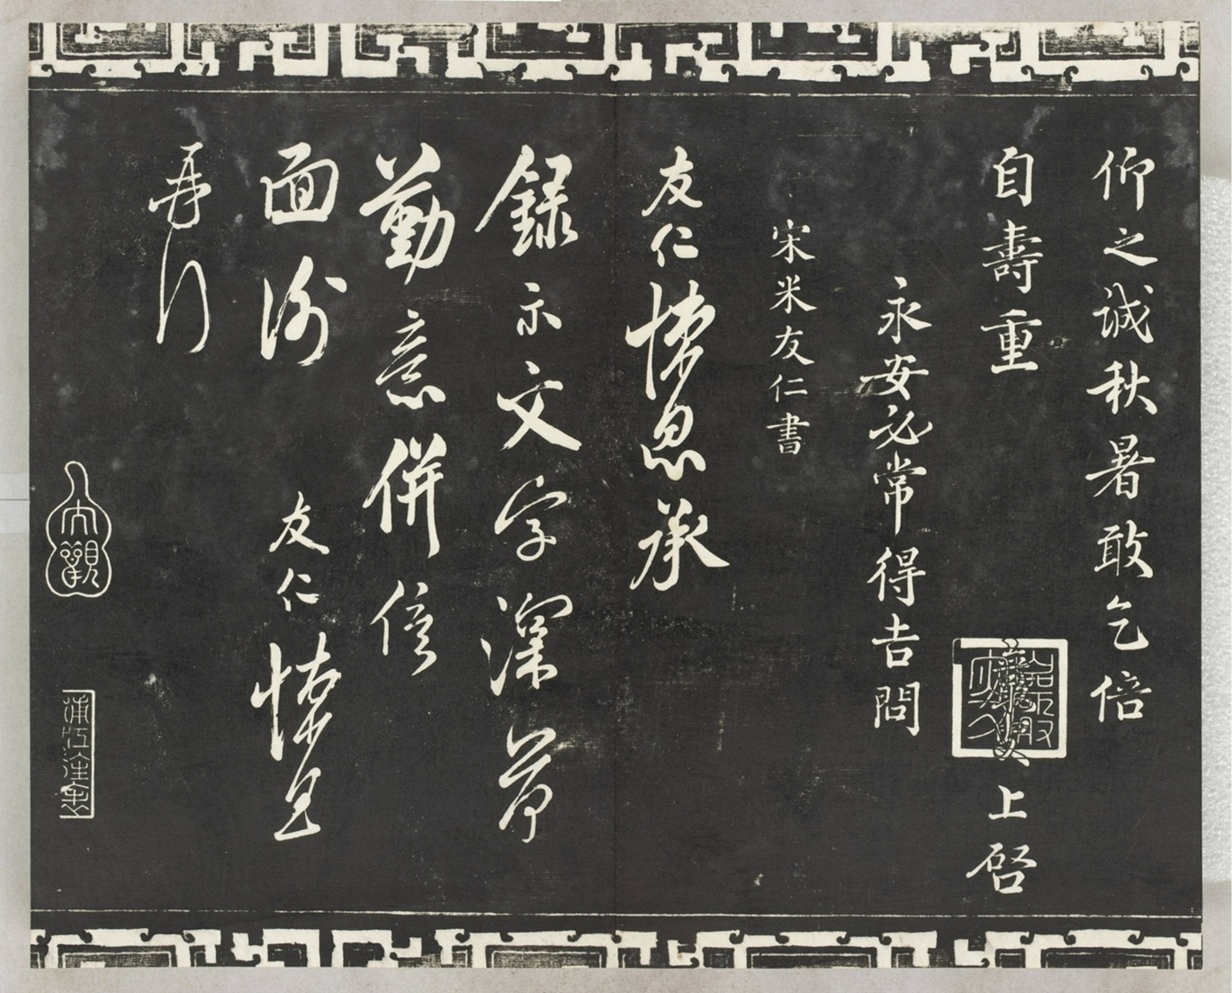 仰之誠秋暑敢乞倍
自壽重
上啓
永安必常得吉問
宋米友仁書
友仁悚息承
錄示文字深荷
勤意併信
面謝
友仁悚息
再行
大觀